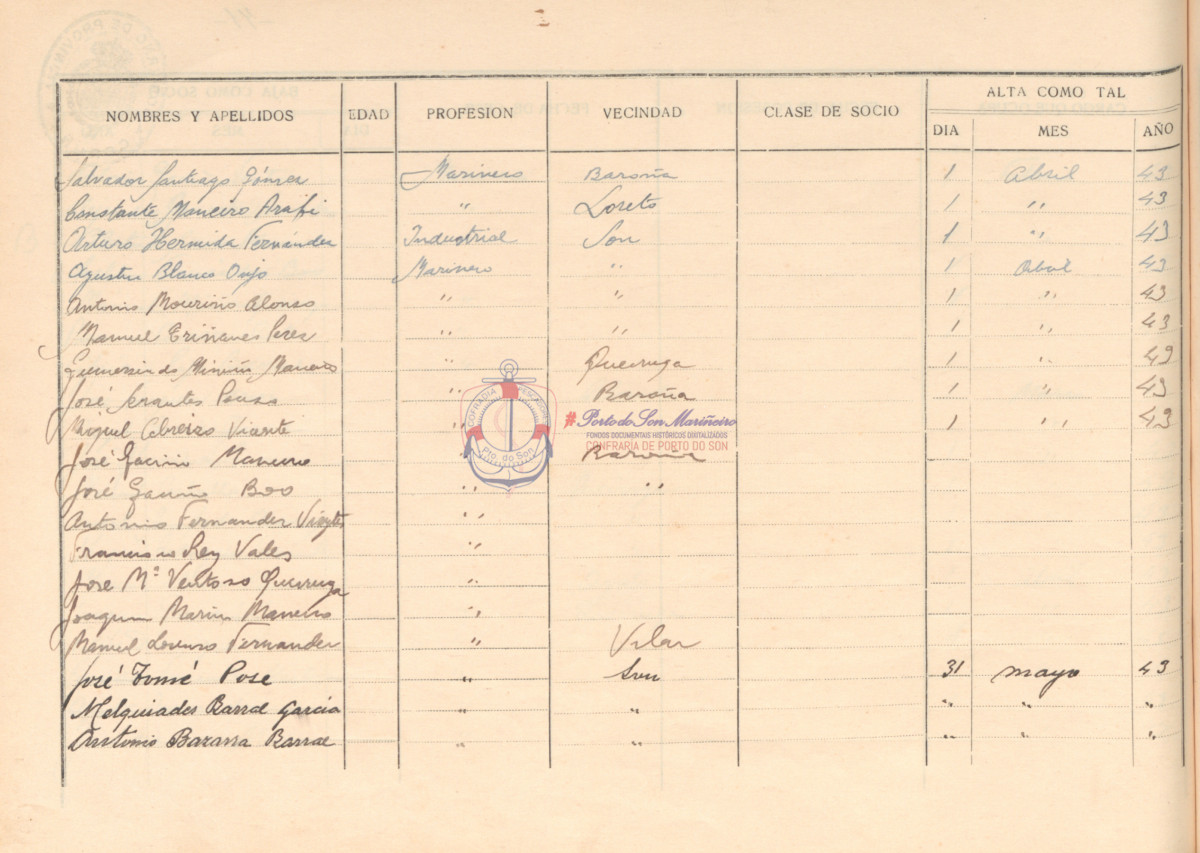 ALTA COMO TAL
NOMBRES Y APELLIDOS EDAD PROFESION VECINDAD CLASE DE SOCIO DIA MES AÑO
Salvador Santiago Gómez Marinero Baroña 1 Abril 43
Constante Maneiro Arafi " Loreto 1 " 43
Arturo Hermida Fernández Industrial Son 1 " 43
Agustin Blanco Marinero " 1 Abril 43
Antonio Mouriño Alonso " " 1 " 43
Manuel Triñanes Perez " " 1 " 43
Gumersindo Maneiro " Queiruga 1 " 43
José Pousa " Baroña 1 " 43
Miguel Vicente " 1 " 43
José Maneiro Baroña
José Boo " "
Antonio Fernandez "
Francisco Rey Vales "
Jose Mª Ventoso Queiruga "
Joaquin Marino Maneiro "
Manuel Lorenzo Fernandez " Vilar
José Tomé Pose " Son 31 mayo 43
Melquiades Barral Garcia " " " " "
Antonio Barral " " " " "
COFRADIA PESCADORES
Pto. do Son
#Porto do Son Mariñeiro
FONDOS DOCUMENTAIS HISTÓRICOS DIXITALIZADOS
CONFRARÍA DE PORTO DO SON